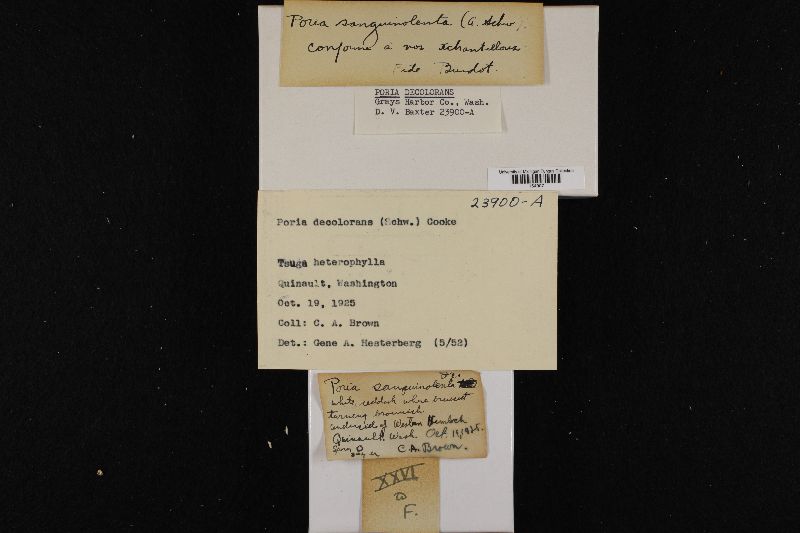 Poria sanguinolenta (A. Schw.)
conforme a nos echantillons
Fide Burdot.
PORIA DECOLORANS
Grays Harbor Co., Wash.
D. V. Baxter 23900-A
University of Michigan Fungus Collection
23900-A
Poria decolorans (Schw.) Cooke
Tsuga heterophylla
Quinault, Washington
Oct. 19, 1925
Coll: C. A. Brown
Det.: Gene A. Hesterberg (5/52)
Fr.
Poria sanguinolenta
white reddish where bruised
turning brownish
underside of Western Hemlock
Quinault, Wash. Oct. 19, 1925.
C. A. Brown.
XXVI
F.